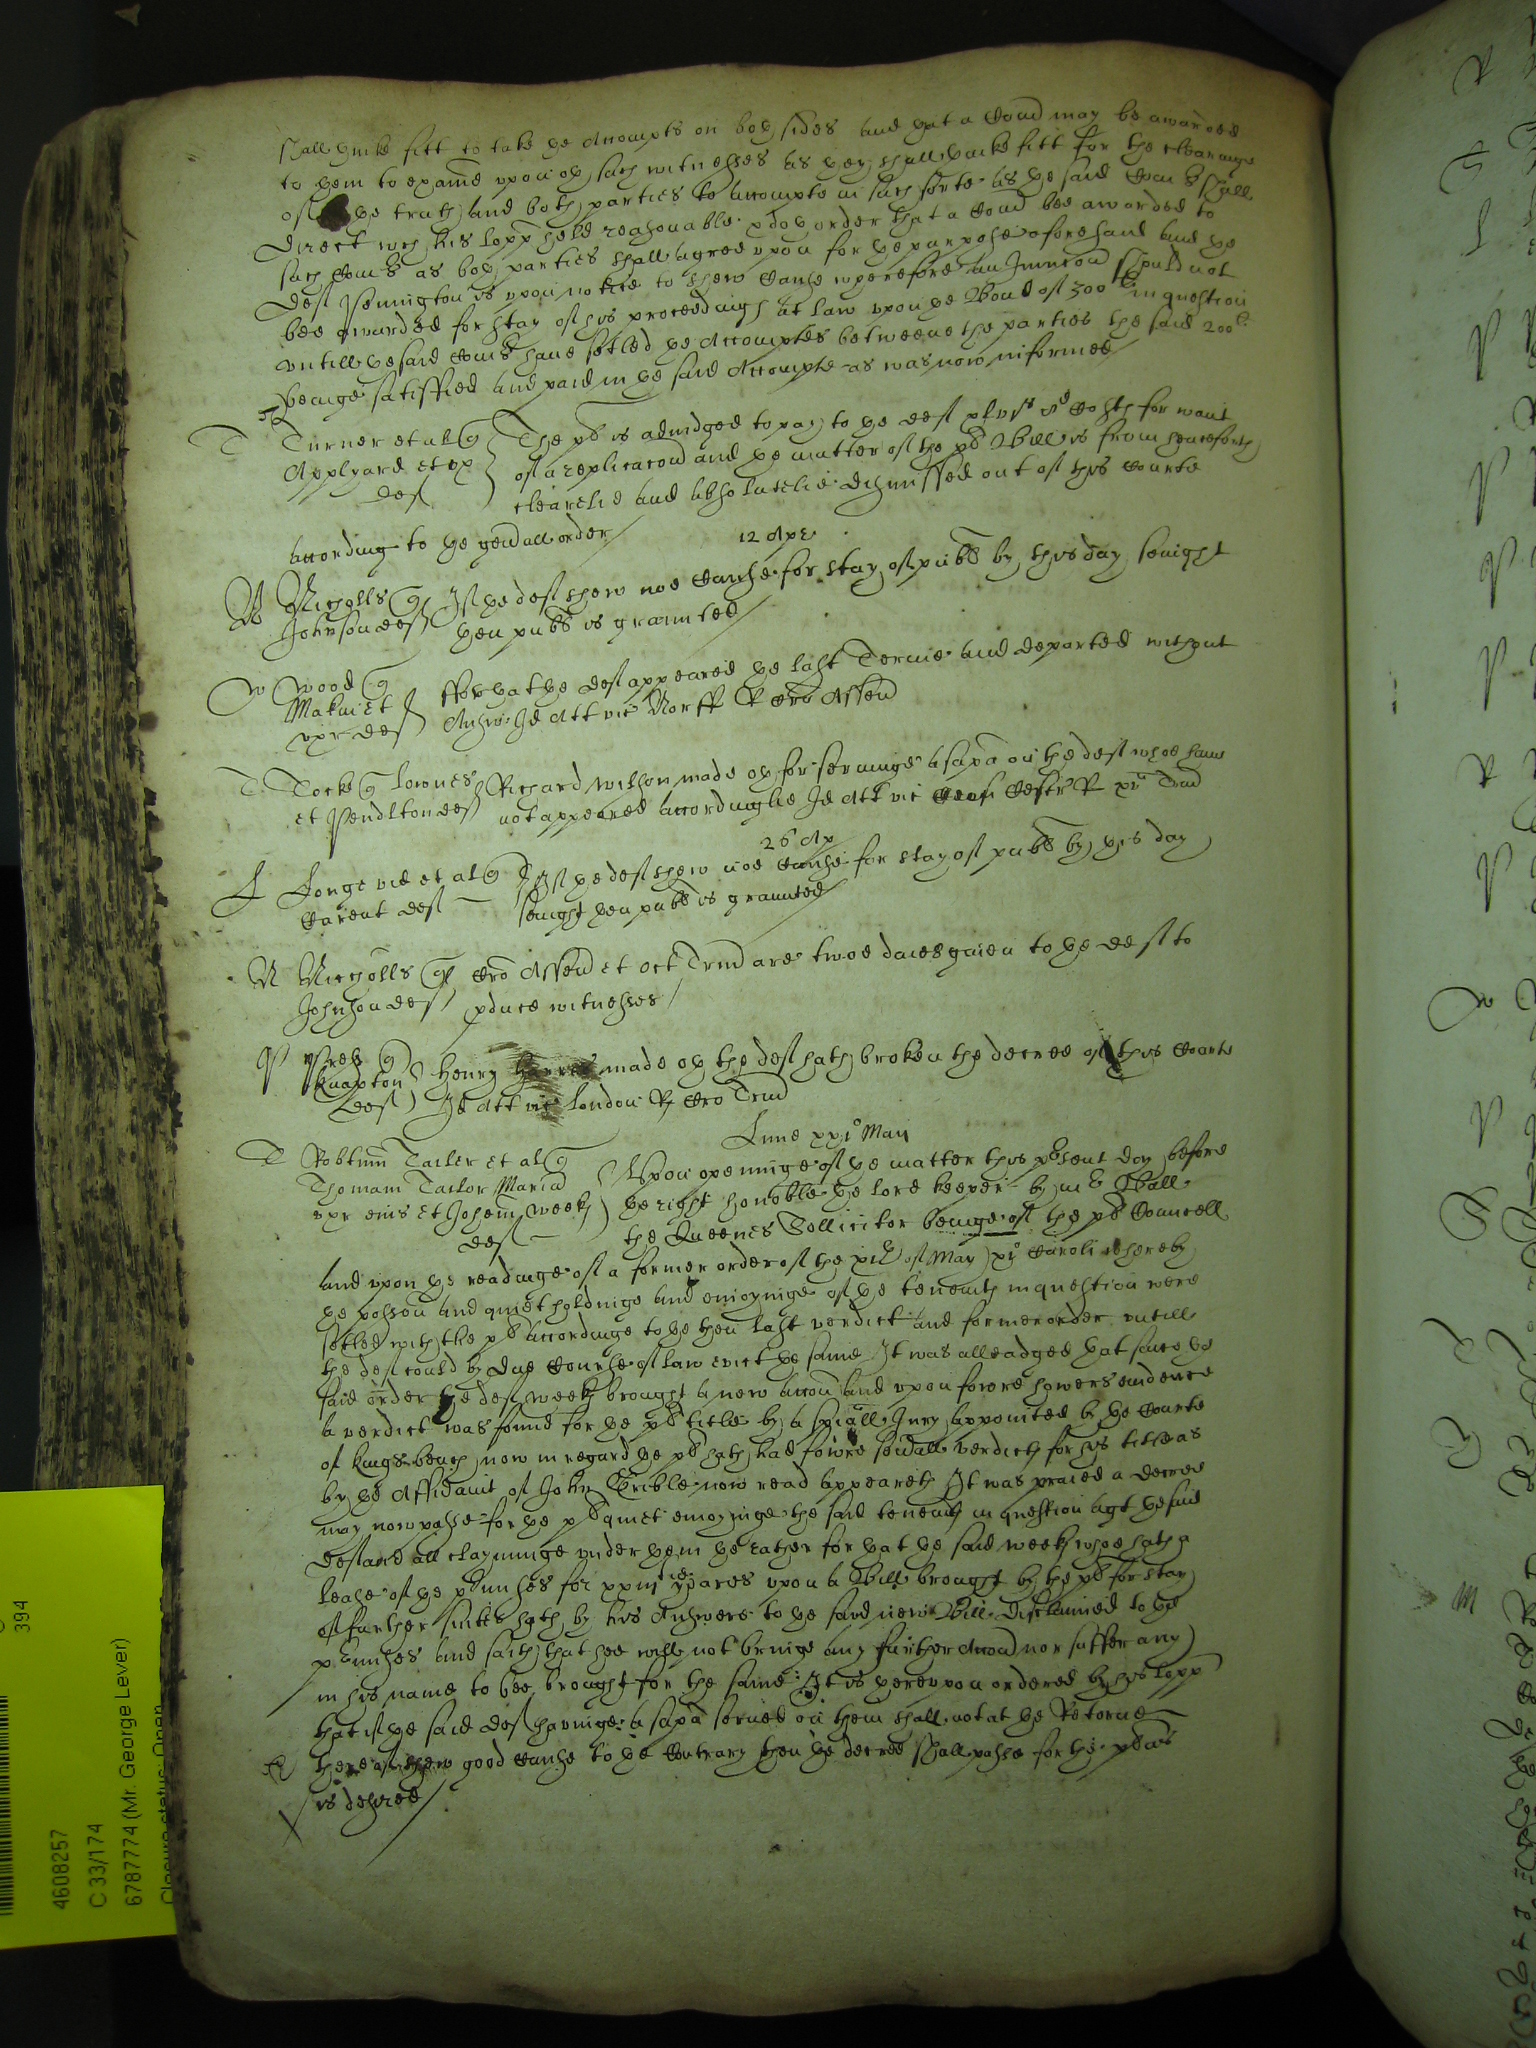 shall thinke fitt to take the Accompts on both sides and that a Com may be awarded
to them to examine upon oth such witnesses as they shall thinke fitt for the clearinge
of the truth and both parties to accompte in such sorte as the said Com shall
direct wch his lopp held reasonable & doth order that a Com bee awarded to
such Coms as both parties shall agree upon for the purpose aforesaid and the
deft Pennington is upon notice to shew Cause wherefore an Iniuncon should not
bee awarded for stay of his proceedings at law upon the Bond of 300li in question
untill the said Coms have setled the Accomptes betweene the parties the said 200li
beinge satisffied and paid in the said Accompte as was now informed
T Turner et al q The plt is adiudged to pay to the deft costs for want
Applyard et ux of a replicacon and the matter of the plts Bill is from henceforth
deft clearelie and absolutelie dismissed out of this Courte
according to the genall order
12 Apr
N Nicholls q If the deft shew noe Cause for stay of publ by this day senight
Johnson deft then publ is graunted
W Wood q fforthat the deft appeared the last Terme and departed without
Makin et Answ Id Att vic Norff R Cro Assen
uxr deft
T Tocke q Lownes Richard made oth for servinge a subpa on the deft whoe have
et Pendlton deft not appeared accordinglie Id Att vic R Trin
26 Apr
L Longe vid et al q If the deft shew noe Cause for stay of publ by this day
Carent deft senight then publ is graunted
N Nicholls q Cro Assen et Oct Trin are twoe daies given to the deft to
Johnson deft pduce witnesses
P q Henry made oth the deft hath broken the decree of this Courte
Knapton deft Id Att vic London R Cro Trin
Lune xxio Maii
T Robtum Tailer et al q Upon openinge of the matter this psent day before
Thomam Tailor Maria the right honoble the lord keeper by mr Ball
uxr eius et Johem Weeks the Queenes Sollicitor beinge of the plts Councell
deft
and upon the readinge of a former order of the of May xio Caroli whereby
the possion and quiet holdinge and enioyninge of the tenemts in question were
setled with the plt accordinge to the then last verdict and former order untill
the deft could by due Course of law evict the same It was alleadged that since the
said order the deft Weeks brought a new accon and upon fowre howers evidence
a verdict was found for the plts title by a spiall Jury appointed by the Courte
of kings bench now in regard the plt hath had fowre sevall verdicts for his title as
by the Affidavit of John Cribble now read appeareth It was praied a decree
may now passe for the plts quiet enioyinge the said tenemts in question agt the said
deft and all clayminge under them the rather for that the said Weeks whoe hath a
lease of the pmises for yeares upon a Bill brought by the plt for stay
of further suites hath by his Answere to the said new Bill disclaimed to the
pmises and saith that hee will not bringe any further Accon nor suffer any
in his name to bee brought for the same: It is thereupon ordered by his lopp
that if the said deft havinge a subpa served on them shall not at the Retorne
thereof shew good Cause to the Contrary then the decree shall passe for the plt as
is desired
394
4608257
C 33/174
6787774 (Mr. George Lever)
Closure status: Open